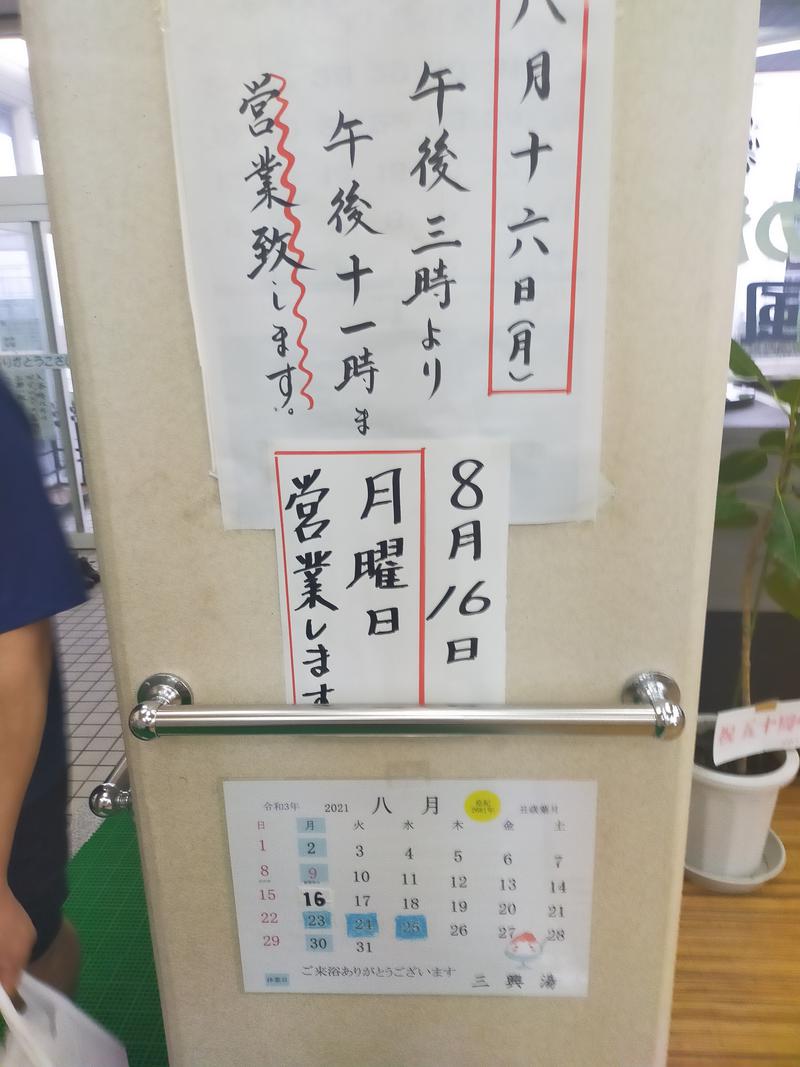 八月十六日(月)
午後三時より
午後十一時ま
営業致します。
8月16日
月曜日
営業します
令和3年 2021 八月 皇紀2681年
日 月 火 水 木 金 土
1 2 3 4 5 6 7
8 9 10 11 12 13 14
15 16 17 18 19 20 21
22 23 24 25 26 27 28
29 30 31
休業日 ご来浴ありがとうございます 三興湯
祝五十周